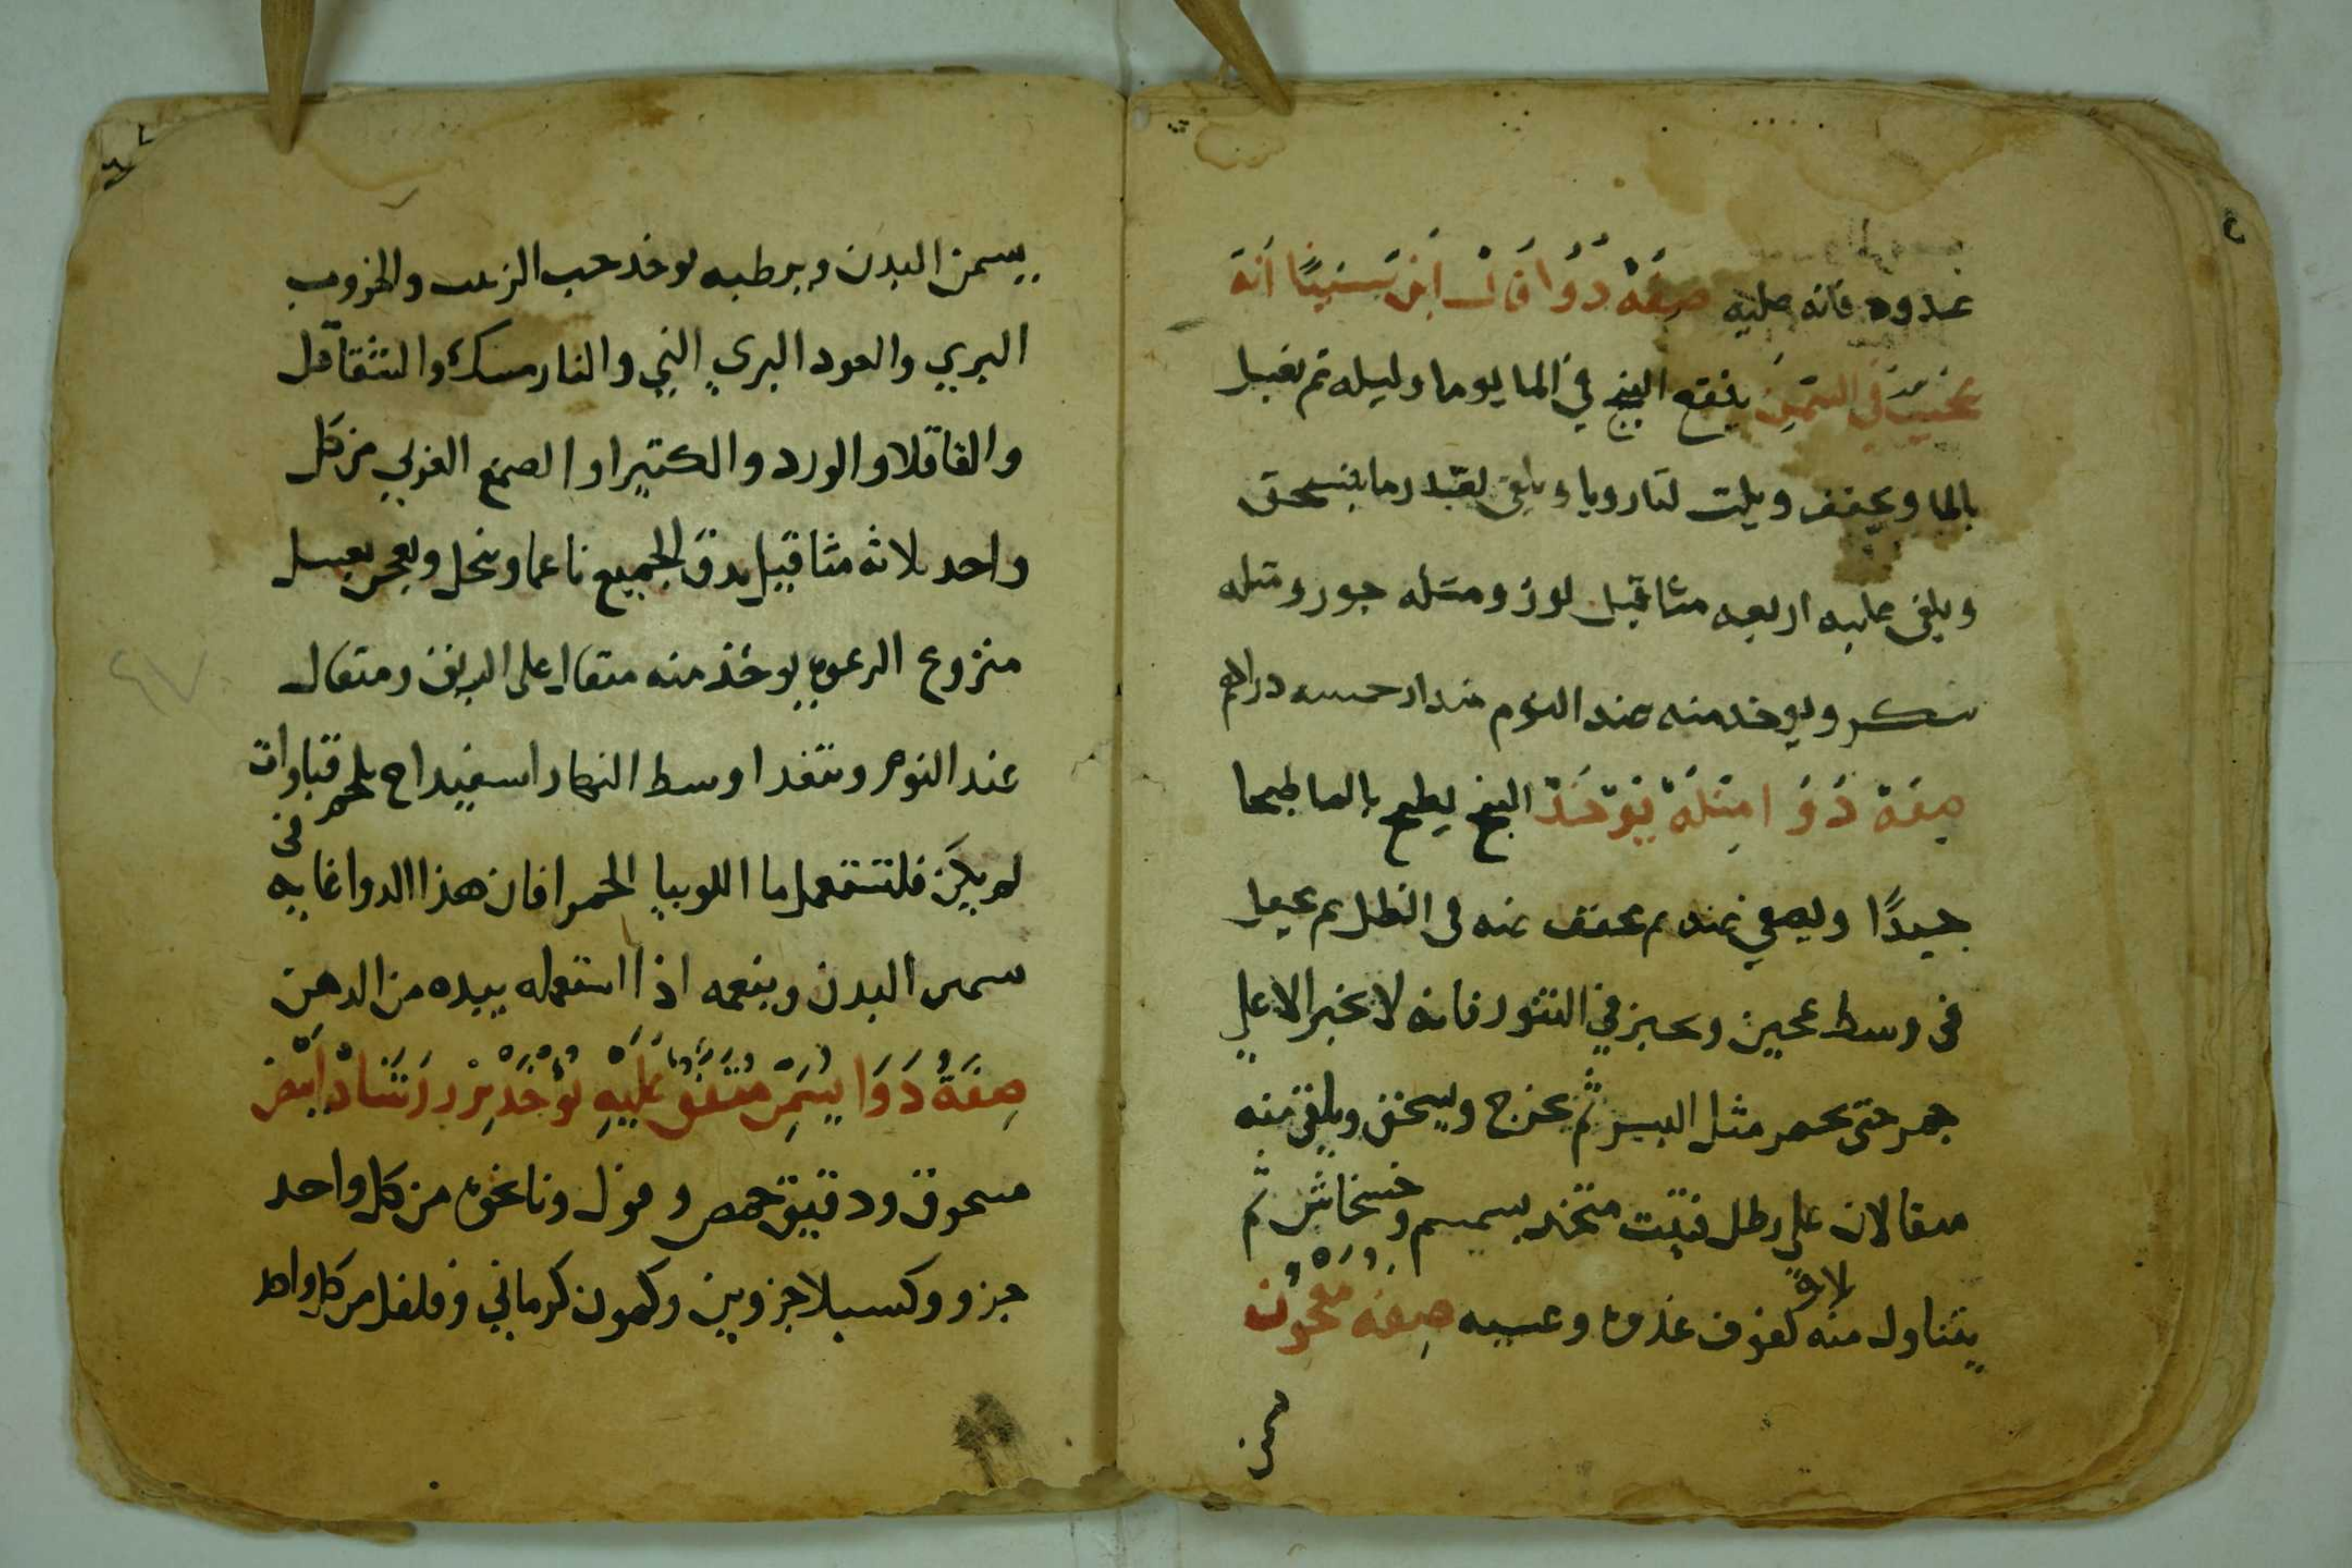 غدوه فانه صليه صفة دوا قال ابن سينا انه
عجيب في السمن ينقع البنج في الما يوما وليله ثم يغسل
بالما ويجفف ويلت ويلقى بعد ما ينسحق
ويلقى عليه اربعه مثاقيل لوز ومثله جوز ومثله
سكر ويوخد منه عند النوم مقدار خمسه دراهم
صفة دوا امثله يوخذ البنج يطبخ بالما طبخا
جيدًا ويصفي عنه ثم يجفف منه في الظل ثم يجعل
في وسط عجين ويخبز في التنور فانه لا يخبز الا علي
جمر حتى يحمر مثل البسر ثم يخرج ويسحق ويلقى منه
مثقالان علي رطل فتيت متخذ بسمسم وخشخاش ثم
يتناول منه ثلاثة كفوف غدوه وعشيه صفة معجون
يسمن
يسمن البدن ويرطبه يوخذ حب الزلم والخروب
البري والعود البري الني والنارمسك والشقاقل
والقاقلا والورد والكتيرا والصمغ العربي من كل
واحد ثلاثه مثاقيل يدق الجميع ناعما وينخل ويعجن بعسل
منزوع الرغوه يوخذ منه مثقال على الريق ومثقال
عند النوم ويتغدا وسط النهار اسفيداج بلحم قنابر وان
لم يكن فلتستعمل ما اللوبيا الحمرا فان هذا الدوا غايه في
سمن البدن وينعمه اذا استعمله بيده من الدهن
صفة دوا يسمن متفق عليه يوخذ بزر رشاد ابيض
مسحوق ودقيق حمص وفول ونانخوه من كل واحد
جزو وكسيلا جزوين وكمون كرماني وفلفل من كل واحد